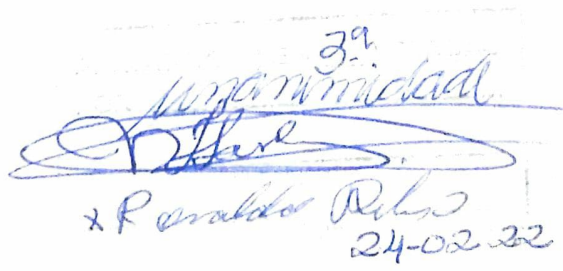 3ª
unanimidade
x Ronaldo
24-02-22